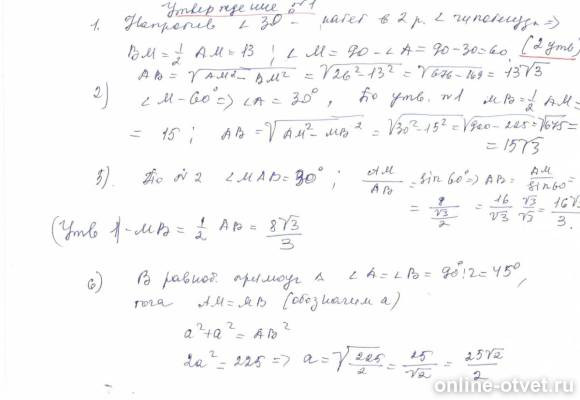 Утверждение №1
1. Напротив ∠ 30° - катет в 2 р. < гипотенузы =>
BM = 1/2 AM = 13 ; ∠ M = 90 - ∠A = 90-30=60. (2 утв)
AB = √(AM² - BM²) = √(26² - 13²) = √(676 - 169) = 13√3
2) ∠ M - 60° => ∠A = 30°, По утв. №1 MB = 1/2 AM =
= 15 ; AB = √(AM² - MB²) = √(30² - 15²) = √(900 - 225) = √675 =
= 15√3
5). По №2 ∠ MAB = 30° ; AM/AB = sin 60° => AB = AM/sin60 =
= 8/(√3/2) = 16/√3 √3/√3 = 16√3/3.
(Утв 1) - MB = 1/2 AB = 8√3/3
6) В равноб. прямоуг ∆ ∠A = ∠B = 90° : 2 = 45°,
тога AM = MB (обозначим a)
a² + a² = AB²
2a² = 225 => a = √(225/2) = 25/√2 = 25√2/2
online-otvet.ru